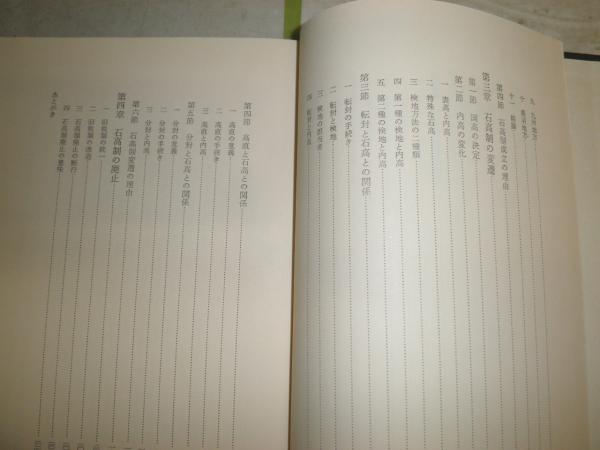 九 九州地方
十
十一
第四節 石高制成立の理由
第三章 石高制の変遷
第一節 国高の決定
第二節 内高の変化
一 表高と内高
二 特殊な石高
三 検地方法の二種類
四 第一種の検地と内高
五 第二種の検地と内高
第三節 転封と石高との関係
一 転封の手続き
二 転封と検地
三 検地の担当者
四
第四節 高直と石高との関係
一 高直の意義
二 高直の手続き
三 高直と内高
第五節 分封と石高との関係
一 分封の意義
二 分封の手続き
三 分封と内高
第六節 石高制変遷の理由
第四章 石高制の廃止
一 旧税制の統一
二 旧税制の改造
三 石高制廃止の断行
四 石高制廃止の意味
あとがき